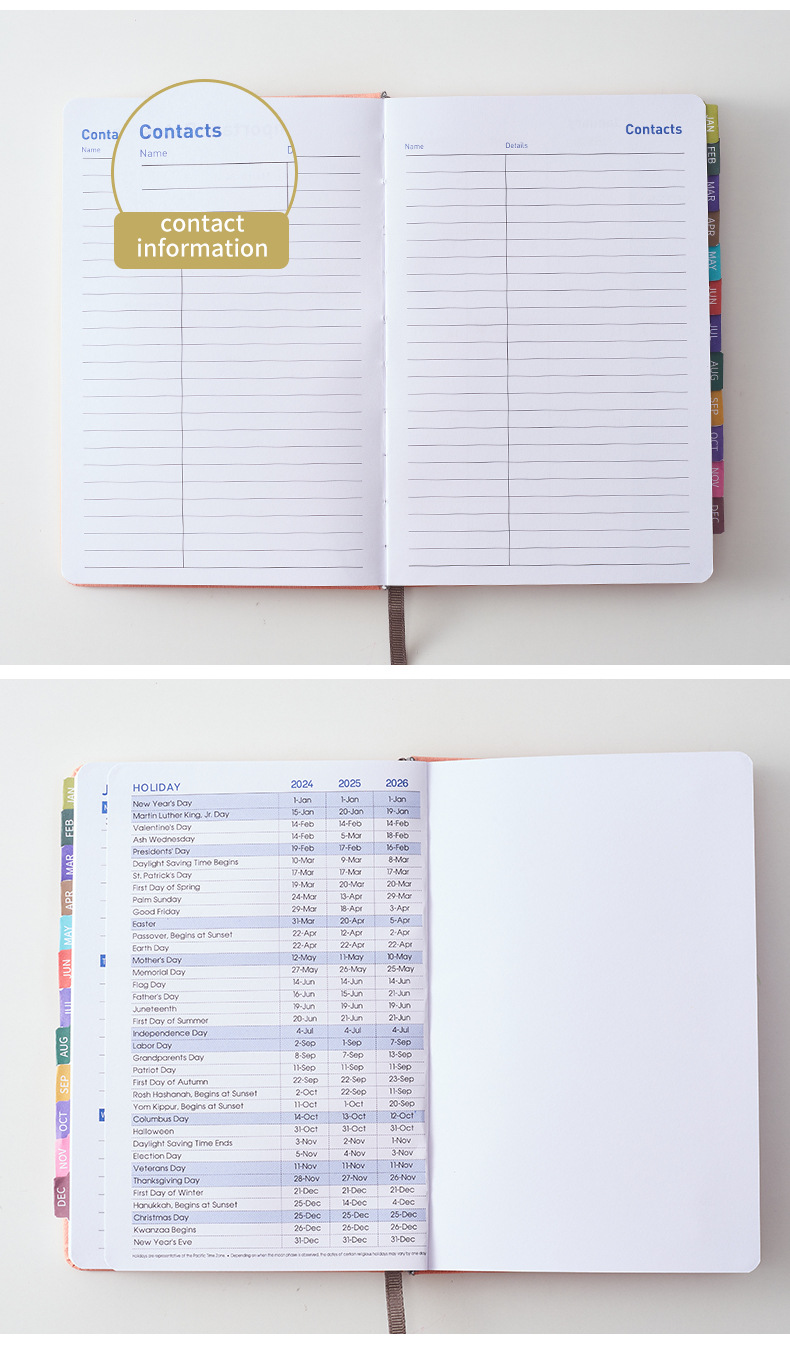 Conta
Name
Contacts
Name
D
contact
information
Contacts
Name
Details
JAN
FEB
MAR
APR
MAY
JUN
JUL
AUG
SEP
OCT
NOV
DEC
JAN
FEB
MAR
APR
MAY
JUN
JUL
AUG
SEP
OCT
NOV
DEC
J
HOLIDAY 2024 2025 2026
New Year's Day 1-Jan 1-Jan 1-Jan
Martin Luther King, Jr. Day 15-Jan 20-Jan 19-Jan
Valentine's Day 14-Feb 14-Feb 14-Feb
Ash Wednesday 14-Feb 5-Mar 18-Feb
Presidents' Day 19-Feb 17-Feb 16-Feb
Daylight Saving Time Begins 10-Mar 9-Mar 8-Mar
St. Patrick's Day 17-Mar 17-Mar 17-Mar
First Day of Spring 19-Mar 20-Mar 20-Mar
Palm Sunday 24-Mar 13-Apr 29-Mar
Good Friday 29-Mar 18-Apr 3-Apr
Easter 31-Mar 20-Apr 5-Apr
Passover, Begins at Sunset 22-Apr 12-Apr 2-Apr
Earth Day 22-Apr 22-Apr 22-Apr
Mother's Day 12-May 11-May 10-May
Memorial Day 27-May 26-May 25-May
Flag Day 14-Jun 14-Jun 14-Jun
Father's Day 16-Jun 15-Jun 21-Jun
Juneteenth 19-Jun 19-Jun 19-Jun
First Day of Summer 20-Jun 21-Jun 21-Jun
Independence Day 4-Jul 4-Jul 4-Jul
Labor Day 2-Sep 1-Sep 7-Sep
Grandparents Day 8-Sep 7-Sep 13-Sep
Patriot Day 11-Sep 11-Sep 11-Sep
First Day of Autumn 22-Sep 22-Sep 23-Sep
Rosh Hashanah, Begins at Sunset 2-Oct 22-Sep 11-Sep
Yom Kippur, Begins at Sunset 11-Oct 1-Oct 20-Sep
Columbus Day 14-Oct 13-Oct 12-Oct
Halloween 31-Oct 31-Oct 31-Oct
Daylight Saving Time Ends 3-Nov 2-Nov 1-Nov
Election Day 5-Nov 4-Nov 3-Nov
Veterans Day 11-Nov 11-Nov 11-Nov
Thanksgiving Day 28-Nov 27-Nov 26-Nov
First Day of Winter 21-Dec 21-Dec 21-Dec
Hanukkah, Begins at Sunset 25-Dec 14-Dec 4-Dec
Christmas Day 25-Dec 25-Dec 25-Dec
Kwanzaa Begins 26-Dec 26-Dec 26-Dec
New Year's Eve 31-Dec 31-Dec 31-Dec
Holidays are representative of the Pacific Time Zone. • Depending on when the moon phase is observed, the dates of certain religious holidays may vary by one day